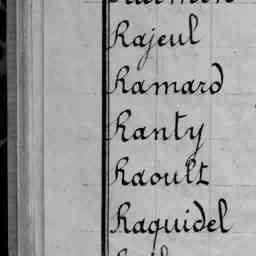 Rajeul
Ramard
Ranty
Raoult
Raquidel